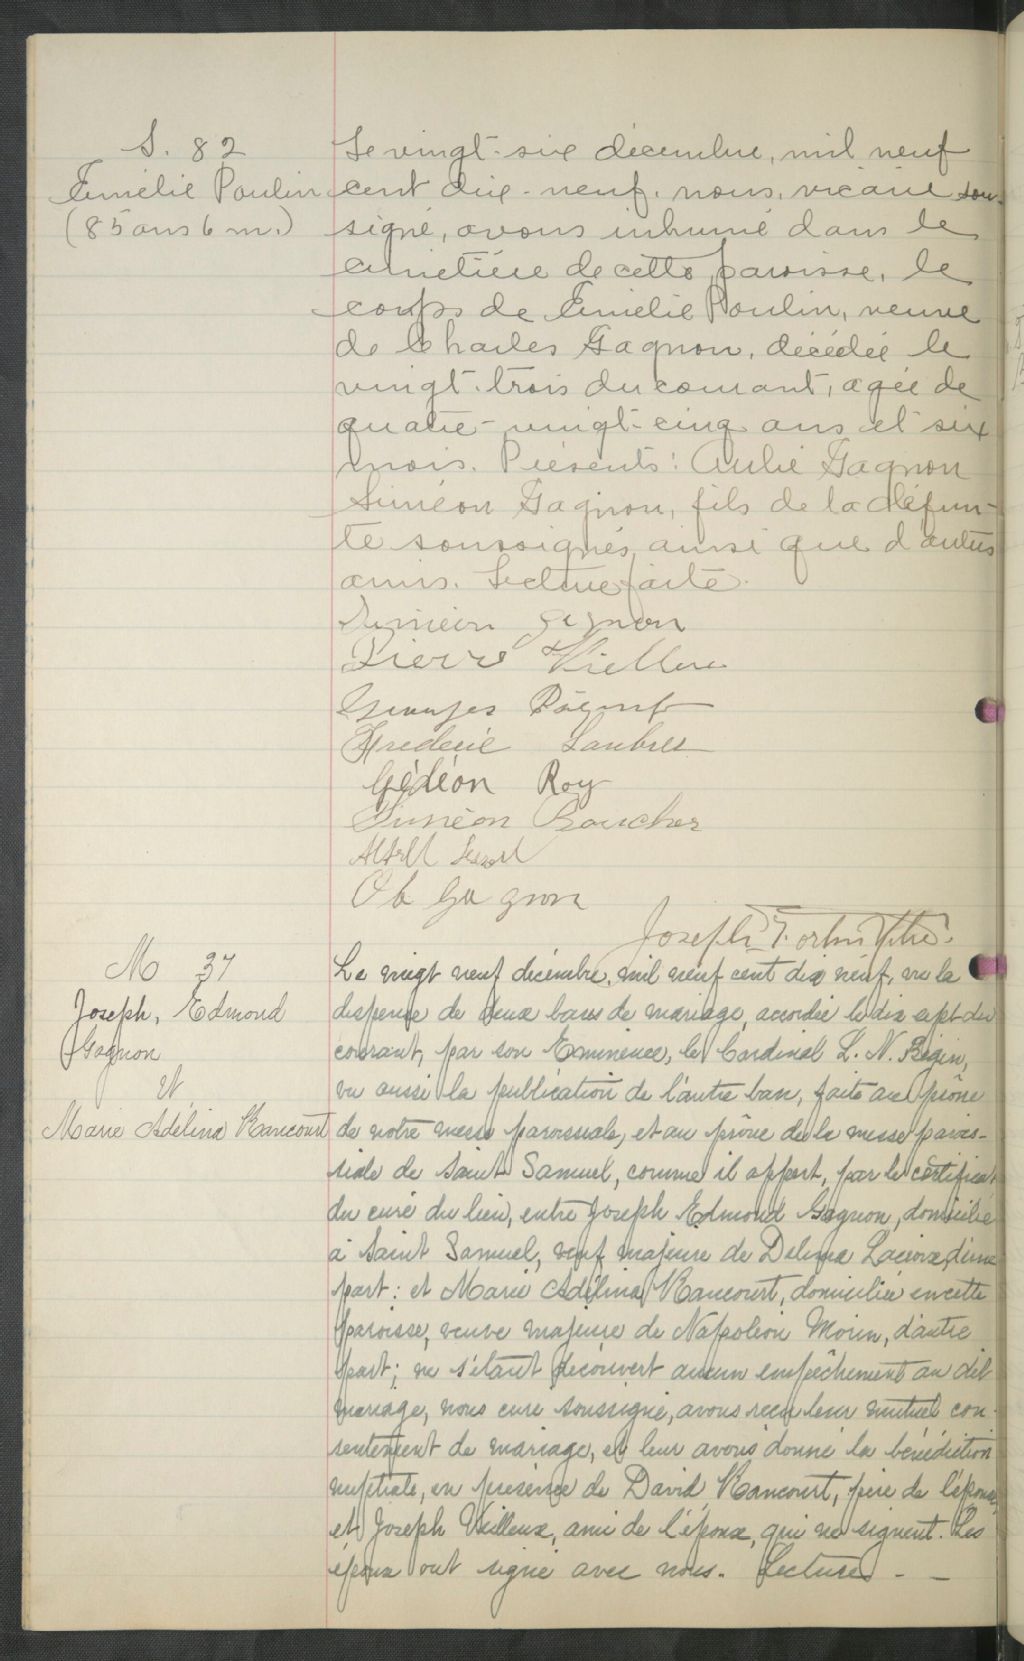 S. 82
Emélie Poulin
(85 ans 6 m.)
Le vingt-six décembre, mil neuf
cent dix-neuf, nous, vicaire sous-
signé, avons inhumé dans le
cimetière de cette paroisse, le
corps de Emélie Poulin, veuve
de Charles Gagnon, décédée le
vingt-trois du courant, agée de
quatre-vingt-cinq ans et six
mois. Présents: Gagnon
Siméon Gagnon, fils de la défun-
te soussignés ainsi que d'autres
amis. Lecture faite.
Siméon Gagnon
Pierre Vielleux
Georges
Frederic
Gédéon Roy
Siméon Boucher
Gagnon
Joseph Fortin Ptre.
M 37
Joseph, Edmond
Gagnon
et
Marie Adélina Rancourt
Le vingt neuf décembre, mil neuf cent dix neuf, vu la
dispense de deux bans de mariage, accordée le dix sept du
courant, par son Eminence, le Cardinal L. N. Bégin,
vu aussi la publication de l'autre ban, faite au prône
de notre messe paroissiale, et au prône de la messe parois-
siale de Saint Samuel, comme il appert, par le certificat
du curé du lieu, entre Joseph Edmond Gagnon, domicilié
à Saint Samuel, veuf majeure de Delima Lacroix, d'une
part: et Marie Adélina Rancourt, domiciliée en cette
paroisse, veuve majeure de Napoléon Morin, d'autre
part; ne s'étant découvert aucun empêchement au dit
mariage, nous curé soussigné, avons reçu leur mutuel con-
sentement de mariage, et leur avons donné la bénédiction
nuptiale, en présence de David Rancourt, père de l'épouse,
et Joseph Veilleux, ami de l'époux, qui ne signent. Les
époux ont signé avec nous. Lecture - -